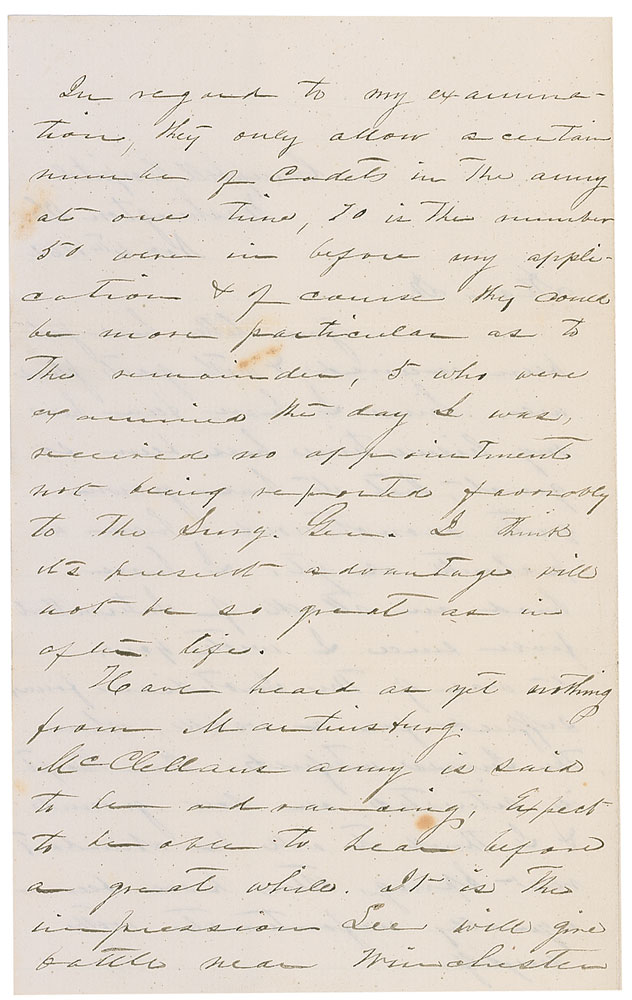 In regard to my examina-
tion, they only allow a certain
number of Cadets in the army
at one time, 70 is the number
50 were in before my appli-
cation & of course they could
be more particular as to
the remainder, 5 who were
examined the day I was,
received no appointment
not being reported favorably
to the Surg. Gen. I think
its present advantage will
not be so great as in
after life.
Have heard as yet nothing
from Martinsburg.
McClellans army is said
to be advancing, Expect
to be able to hear before
a great while. It is the
impression Lee will give
battle near Winchester